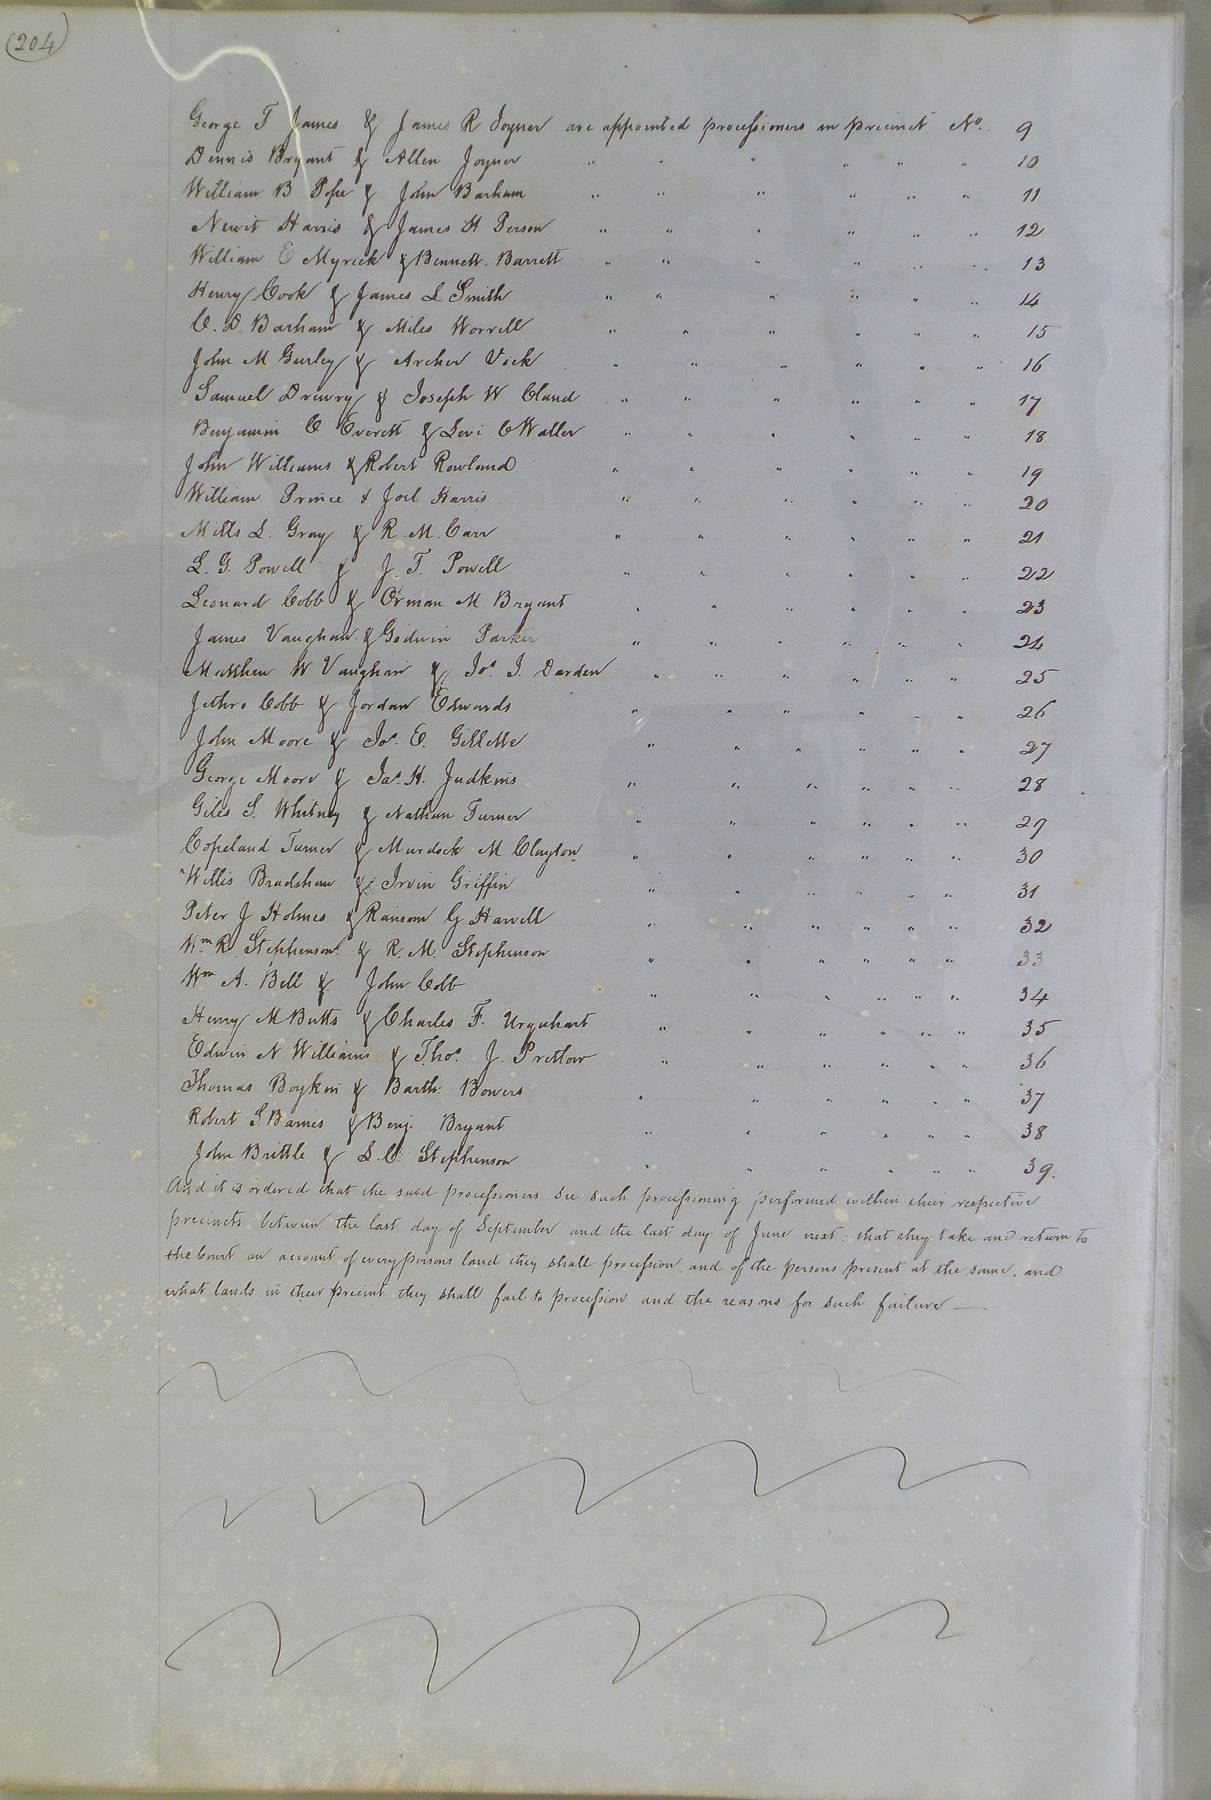 (204)
George T James & James R Joyner are appointed processioners in precinct No. 9
Dennis Bryant & Allen Joyner " " " " " " 10
William B Pope & John Barham " " " " " " 11
Newit Harris & James H Person " " " " " " 12
William E Myrick & Bennett Barrett " " " " " " 13
Henry Cook & James L Smith " " " " " " 14
C. D. Barham & Miles Worrell " " " " " " 15
John M Gurley & Archer Vick " " " " " " 16
Samuel Drewry & Joseph W Claud " " " " " " 17
Benjamin C Everett & Levi C Waller " " " " " " 18
John Williams & Robert Rowland " " " " " " 19
William Prince & Joel Harris " " " " " " 20
Mills L. Gray & R. M. Carr " " " " " " 21
L. G. Powell & J. T. Powell " " " " " " 22
Leonard Cobb & Orman M Bryant " " " " " " 23
James Vaughan & Godwin Parker " " " " " " 24
Matthew W Vaughan & Jos. J. Darden " " " " " " 25
Jethro Cobb & Jordan Edwards " " " " " " 26
John Moore & Jos. E. Gillette " " " " " " 27
George Moore & Jas. H. Judkins " " " " " " 28
Giles S. Whitney & Nathan Turner " " " " " " 29
Copeland Turner & Murdock M Clayton " " " " " " 30
Willis Bradshaw & Irvin Griffin " " " " " " 31
Peter J Holmes & Ransom G Harrell " " " " " " 32
Wm R. Stephenson & R. M. Stephenson " " " " " " 33
Wm A. Bell & John Cobb " " " " " " 34
Henry M Butts & Charles F. Urquhart " " " " " " 35
Edwin N Williams & Thos. J. Pretlow " " " " " " 36
Thomas Boykin & Barth: Bowers " " " " " " 37
Robert S. Barnes & Benj. Bryant " " " " " " 38
John Brittle & S. C. Stephenson " " " " " " 39.
And it is ordered that the said processioners see such processioning performed within their respective
precincts between the last day of September and the last day of June next; that they take and return to
the Court an account of every persons land they shall procession, and of the persons present at the same, and
what lands in their precinct they shall fail to procession and the reasons for such failure —